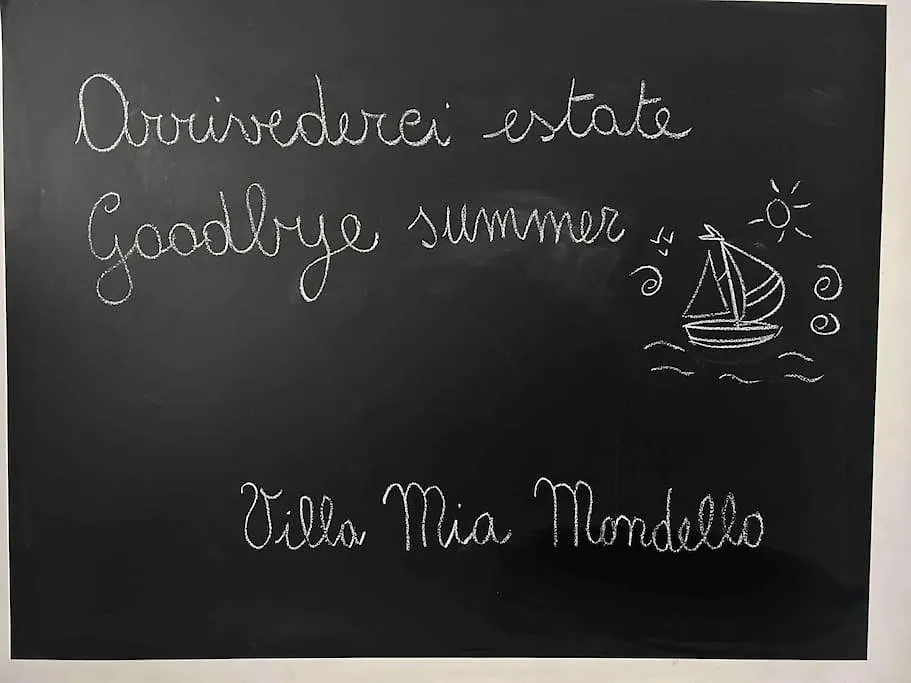 Arrivederci estate
Goodbye summer
Villa Mia Mondello